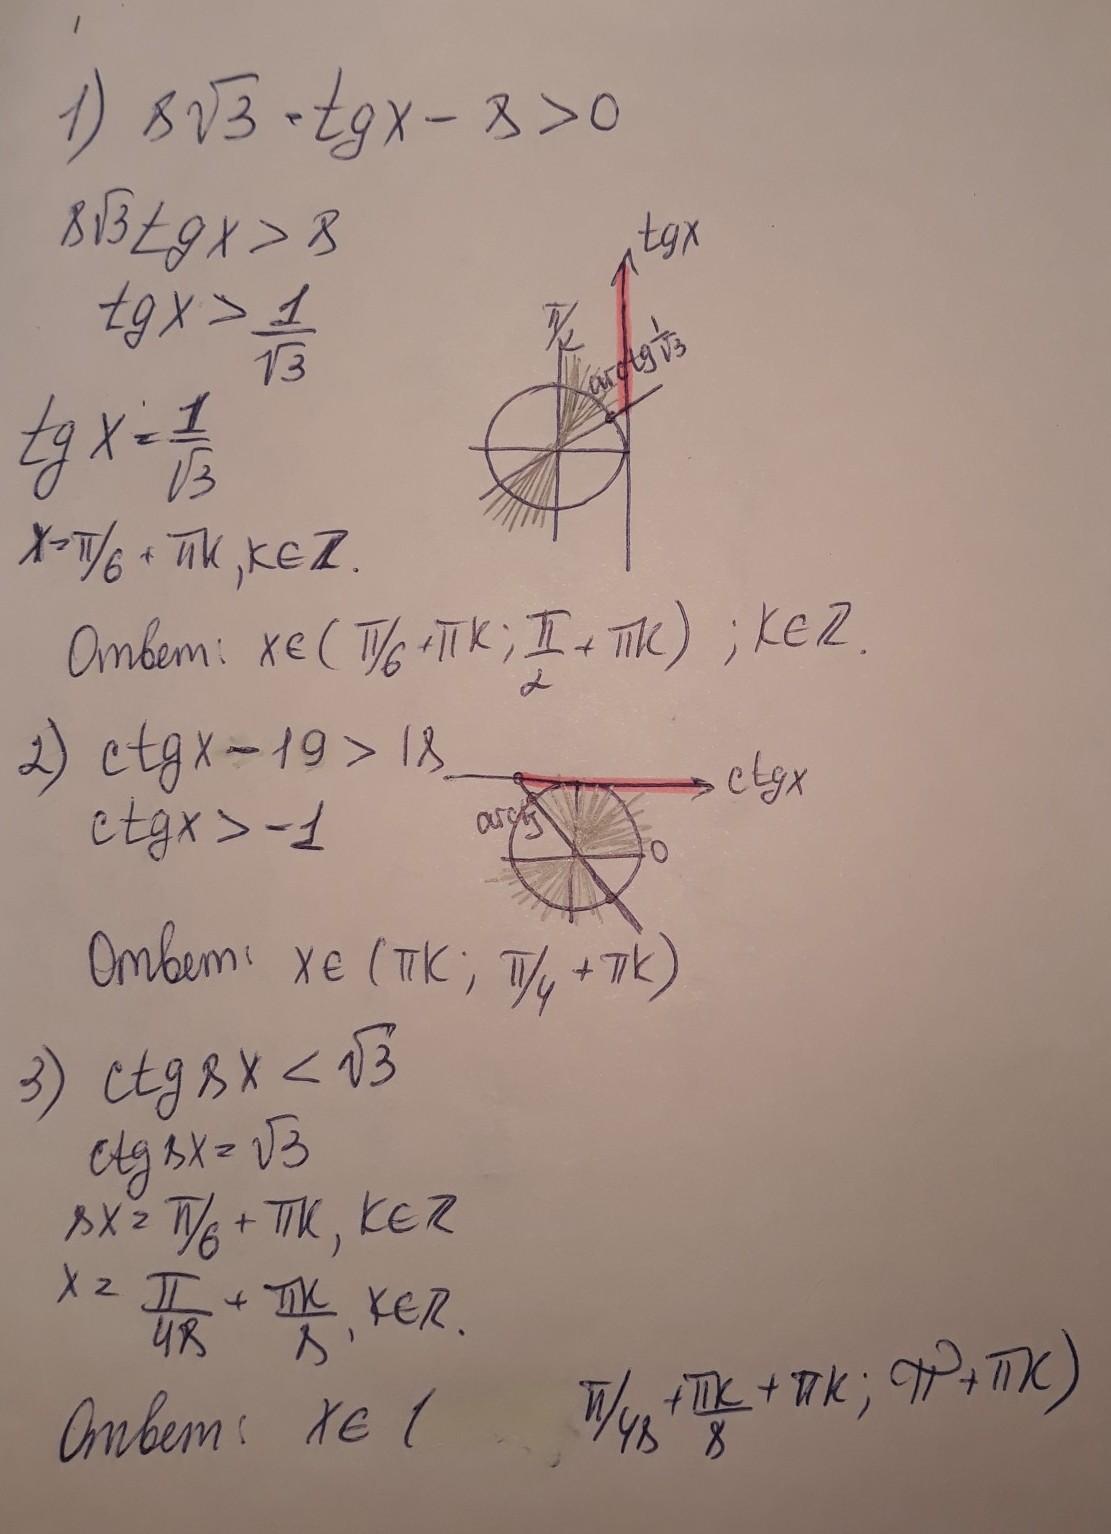 1) 8√3 · tgx - 8 > 0
8√3 tgx > 8
tgx > 1/√3
tgx = 1/√3
x = π/6 + πk, k∈Z.
tgx
π/2
arctg 1/√3
Ответ: x∈(π/6 + πk; π/2 + πk) ; k∈Z.
2) ctgx - 19 > 18
ctgx
ctgx > -1
0
Ответ: x∈(πk; π/4 + πk)
3) ctg8x < √3
ctg8x = √3
8x = π/6 + πk, k∈Z
x = π/48 + πk/8, k∈Z.
Ответ: x∈( π/48 + πk/8 + πk; π + πk)